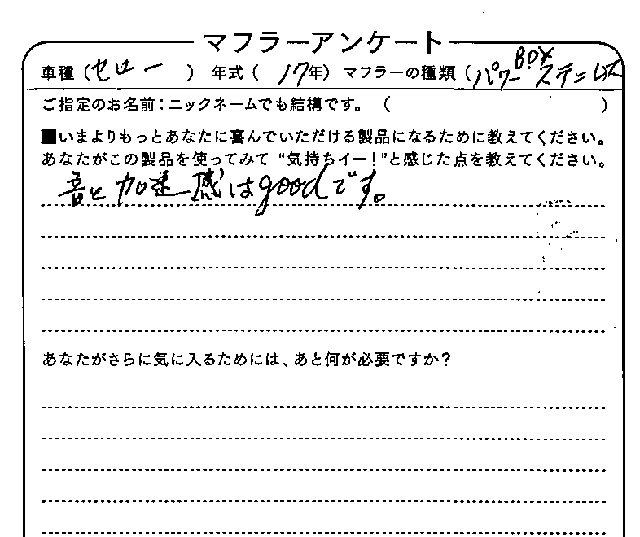 マフラーアンケート
車種（セロー ） 年式（ 17年） マフラーの種類（パワーBOX ステンレス
ご指定のお名前：ニックネームでも結構です。（ ）
■いまよりもっとあなたに喜んでいただける製品になるために教えてください。
あなたがこの製品を使ってみて“気持ちイー！”と感じた点を教えてください。
音と加速感はgoodです。
あなたがさらに気に入るためには、あと何が必要ですか？